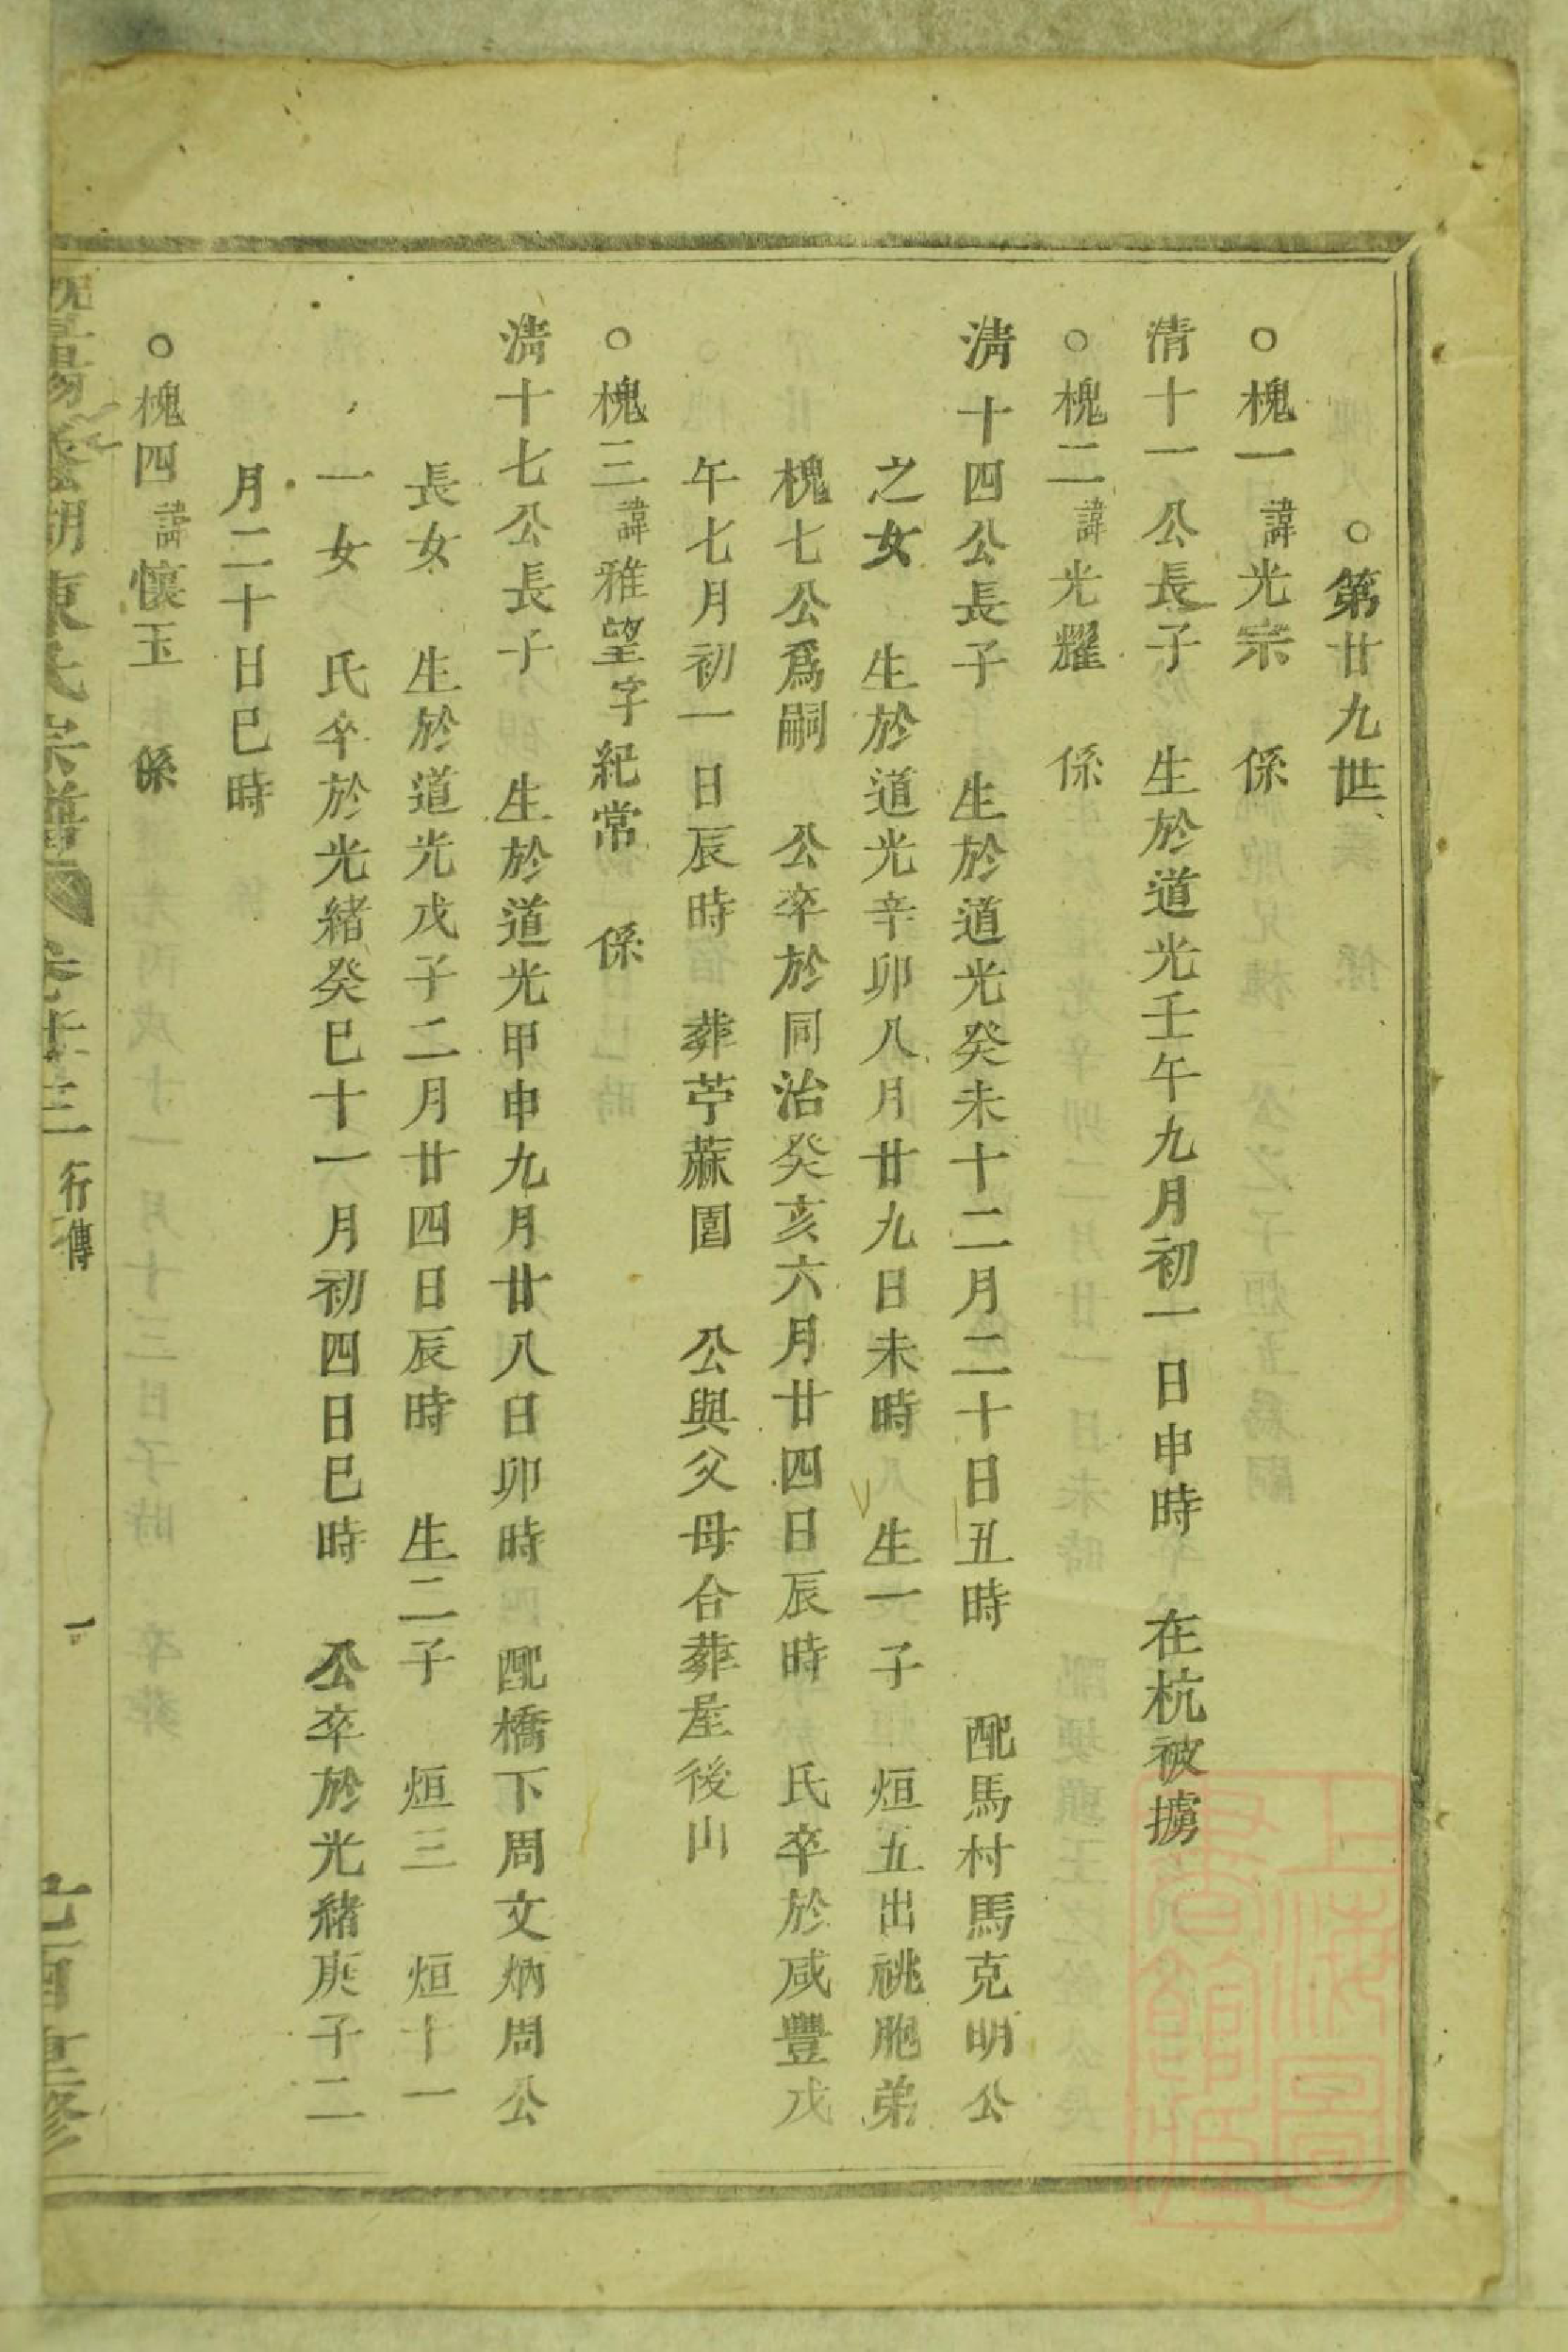 ○第廿九世
○槐一諱光宗　係
淸十一公長子　生於道光壬午九月初一日申時　在杭被擄
○槐二諱光耀　係
淸十四公長子　生於道光癸未十二月二十日丑時　配馬村馬克明公
之女　生於道光辛卯八月廿九日未時　生一子　烜五出祧胞弟
槐七公爲嗣　公卒於同治癸亥六月廿四日辰時　氏卒於咸豐戊
午七月初一日辰時　葬苧蔴園　公與父母合葬屋後山
○槐三諱雅望字紀常　係
淸十七公長子　生於道光甲申九月廿八日卯時　配橋下周文炳周公
長女　生於道光戊子二月廿四日辰時　生二子　烜三　烜十一
一女　氏卒於光緒癸巳十一月初四日巳時　公卒於光緒庚子二
月二十日巳時
○槐四諱懷玉　係
湖東氏宗譜 行傳 一 重修
上海圖書館藏